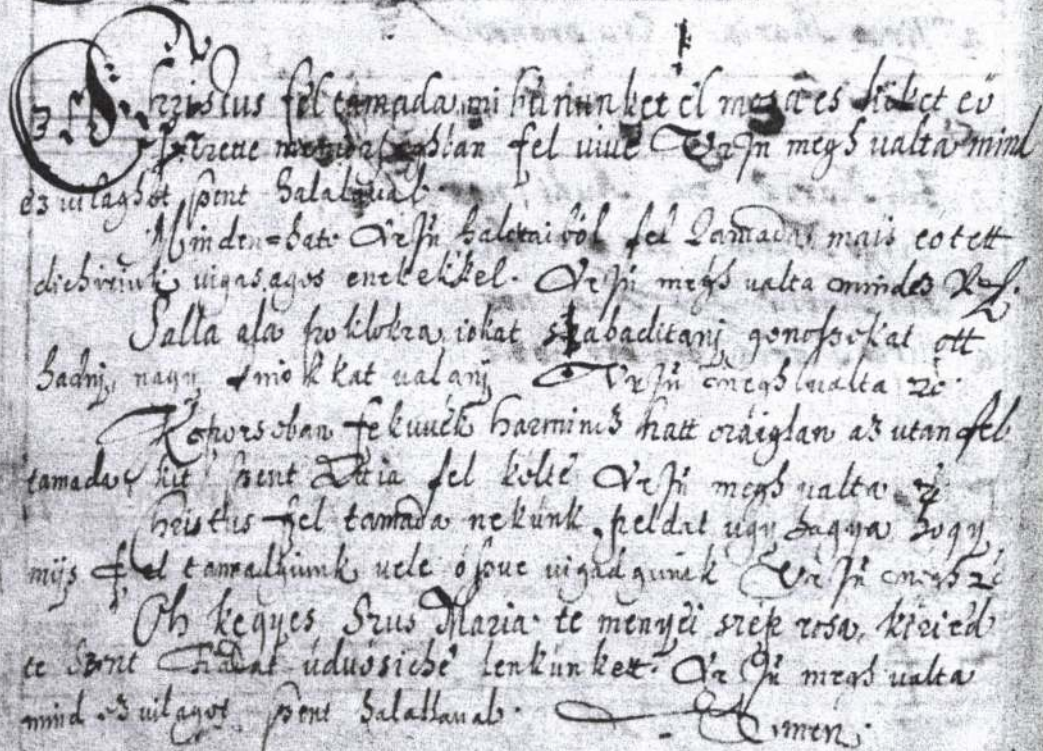 Christus fel tamada, mi bűnünket el mosa es kiket eő
szerete menÿorszaghban fel vivé Vr Jsñ meghvalta mind
ez vilaghot szent halalaval.
Minden=hato Vr Jsñ halottaiból fel Tamada, mais eőtett
dichiriuk vigasagos enekekkel. Vr Jsñ meghvalta mindez
Szalla ala poklokra, iokat szabaditanj, gonoszokat ott
hadnj, nagy kat valanj Vr Jsñ meghvalta zc.
Koporsoban fekuvék harmincz hatt oráiglan az utan fel
tamada, kit szent Attia fel költé Vr Jsñ meghvalta zc
Christus fel tamada nekünk peldat ugy hagya hogy
mijs fel tamadgiunk vele öszve vigadgunk Vr Jsñ megh zc
Oh kegyes Szus Maria te menyéi szép rosa, kériéd
te Szent Fiadat üdvösiché lenkünket. Vr Jsñ meghvalta
mind ez vilagot szent halallaval. Amen.